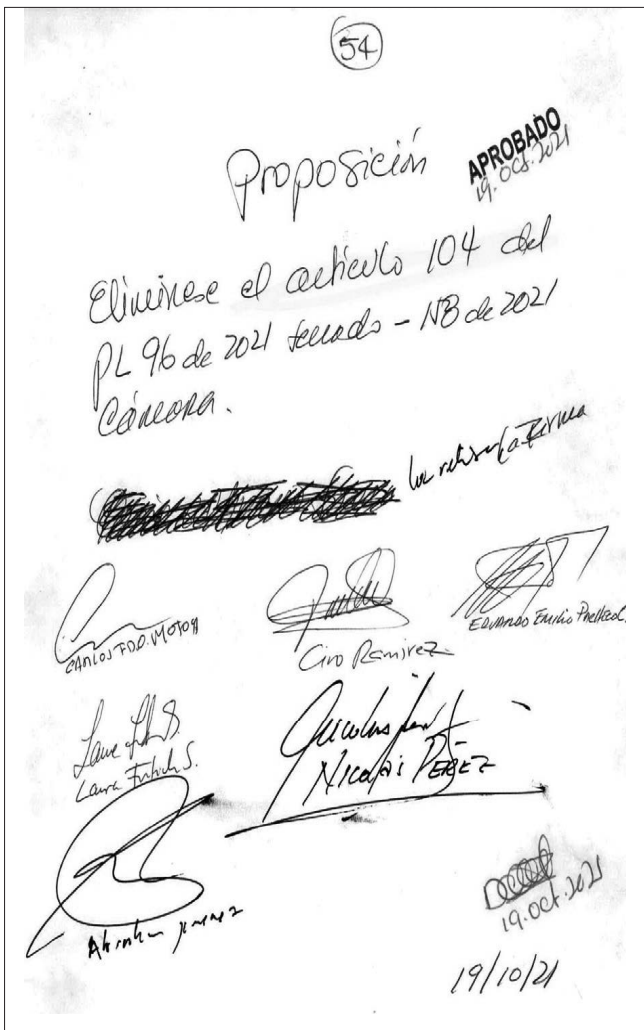 54
Proposición
APROBADO
19. Oct. 2021
Elimínese el artículo 104 del
PL 96 de 2021 senado - 118 de 2021
Cámara.
la firma
CARLOS FDO. MOTOA
Ciro Ramírez
EDUARDO Emilio Pacheco
Laura Fortich S.
Nicolás PÉREZ
Abraham jimenez
19.oct.2021
19/10/21